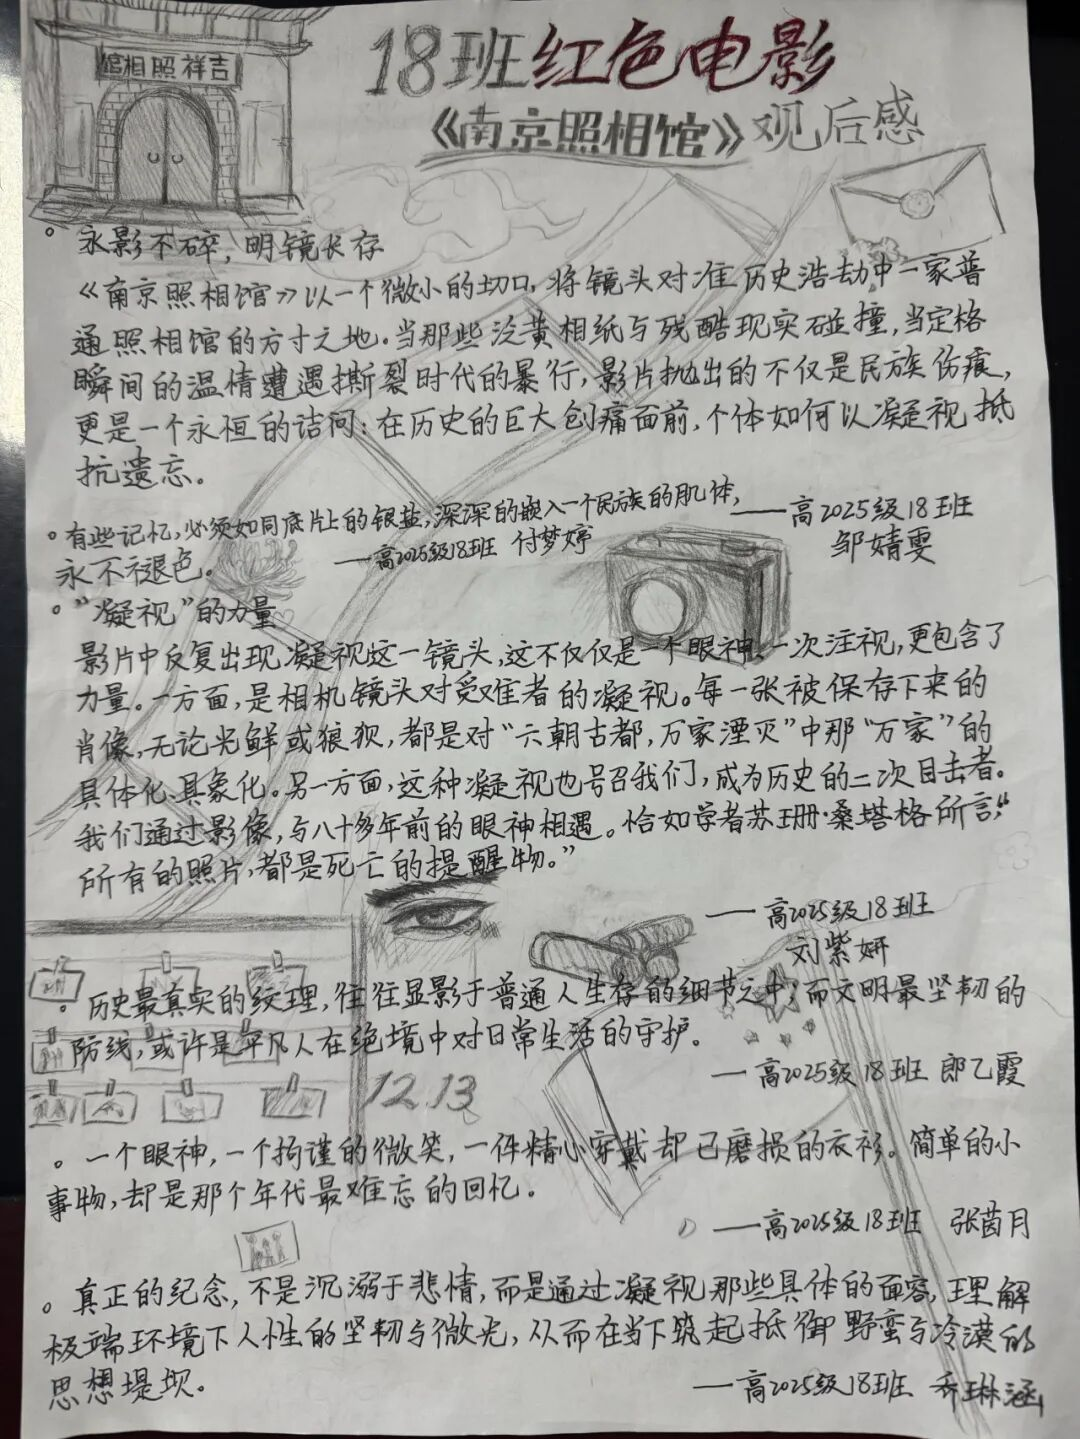 馆相照祥吉
18班红色电影
《南京照相馆》观后感
。永影不碎，明镜长存
《南京照相馆》以一个微小的切口，将镜头对准历史浩劫中一家普
通照相馆的方寸之地。当那些泛黄相纸与残酷现实碰撞，当定格
瞬间的温情遭遇撕裂时代的暴行，影片抛出的不仅是民族伤痕，
更是一个永恒的诘问：在历史的巨大创痛面前，个体如何以凝视抵
抗遗忘。
——高2025级18班
邹婧雯
。有些记忆，必须如同底片上的银盐，深深的嵌入一个民族的肌体，
永不褪色。
——高2025级18班 付梦婷
。“凝视”的力量
影片中反复出现凝视这一镜头，这不仅仅是一个眼神、一次注视，更包含了
力量。一方面，是相机镜头对受难者的凝视。每一张被保存下来的
肖像，无论光鲜或狼狈，都是对“六朝古都，万家湮灭”中那“万家”的
具体化、具象化。另一方面，这种凝视也号召我们，成为历史的二次目击者。
我们通过影像，与八十多年前的眼神相遇。恰如学者苏珊·桑塔格所言，“
所有的照片，都是死亡的提醒物。”
——高2025级18班
刘紫妍
。历史最真实的纹理，往往显影于普通人生存的细节之中；而文明最坚韧的
防线，或许是平凡人在绝境中对日常生活的守护。
—高2025级18班 郎乙霞
12.13
。一个眼神，一个拘谨的微笑，一件精心穿戴却已磨损的衣衫。简单的小
事物，却是那个年代最难忘的回忆。
——高2025级18班 张茵月
。真正的纪念，不是沉溺于悲情，而是通过凝视那些具体的面容，理解
极端环境下人性的坚韧与微光，从而在当下筑起抵御野蛮与冷漠的
思想堤坝。
—高2025级18班 乔琳涵